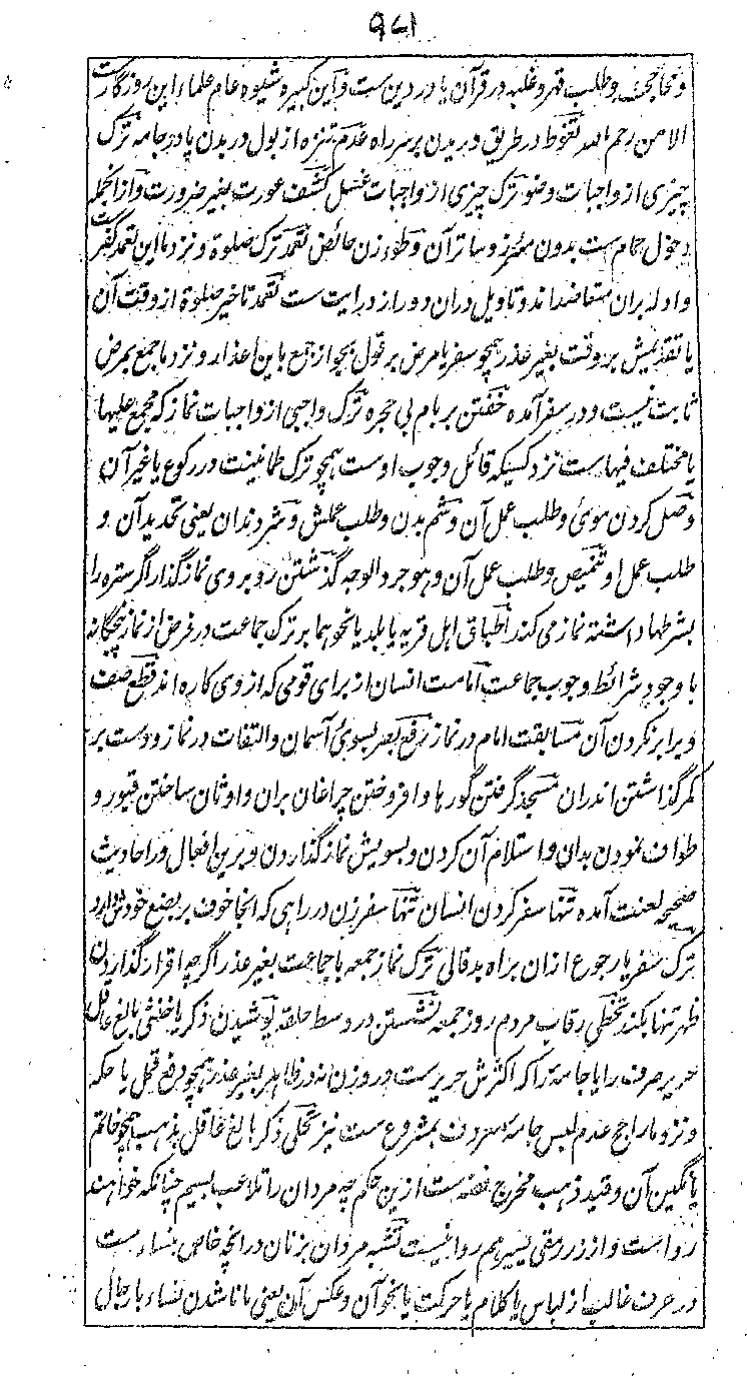 ۹۸۱
و محاججت و طلب قهر و غلبه در قرآن یا در دین ست و این کبیره شیوه عام علماء این روزگارست
الا من رحم الله تغوط در طریق و ریدن بر سر راه عدم تنزه از بول در بدن یا در جامه ترک
چیزی از واجبات وضو ترک چیزی از واجبات غسل کشف عورت بغیر ضرورت و از انجمله
دخول حمام ست بدون مئزر و ساتر آن وطوء زن حائض تعمد ترک صلوة و نزد ما این تعمد کفر ست
و ادله بران متعاضد اند و تاویل دران دور از درایت ست تعمد تاخیر صلوة از وقت آن
یا تقدیمش بر وقت بغیر عذر همچو سفر یا مرض بر قول بجواز جمع باین اعذار و نزد ما جمع بمرض
ثابت نیست و در سفر آمده خفتن بر بام بی حجره ترک واجبی از واجبات نماز که مجمع علیها
یا مختلف فیهاست نزد کسیکه قائل وجوب اوست همچو ترک طمانینت در رکوع یا غیر آن
وصل کردن موئ و طلب عمل آن وشم بدن و طلب عملش وشر دندان یعنی تحدید آن و
طلب عمل او تنمیص و طلب عمل آن و هو جرد الوجه گذشتن رو بروی نماز گذار اگر ستره را
بشرطها داشته نماز می کند اطباق اهل قریه یا بلد یا نحو هما بر ترک جماعت در فرض از نماز پنجگانه
با وجود شرائط وجوب جماعت امامت انسان از برای قومی که از وی کاره اند قطع صف
و برابر نکردن آن مسابقت امام در نماز رفع بصر بسوئ آسمان و التفات در نماز و دست بر
کمر گذاشتن اندران مسجد گرفتن گورها و افروختن چراغان بران و اوثان ساختن قبور و
طواف نمودن بدان و استلام آن کردن و بسویش نماز گذاردن و برین افعال در احادیث
صحیحه لعنت آمده تنها سفر کردن انسان تنها سفر زن در راهی که انجا خوف بر بضع خودش دارد
ترک سفر یا رجوع ازان براه بدفالی ترک نماز جمعه با جماعت بغیر عذر اگرچه اقرار گذاریدن
ظهر تنها بکند تخطی رقاب مردم روز جمعه نشستن در وسط حلقه پوشیدن ذکر یا خنثی بالغ عاقل
حریر صرف را یا جامه را که اکثرش حریر ست در وزن نه در ظاهر بغیر عذر همچو دفع قمل یا حکه
و نزد ما راجح عدم لبس جامه صرف بمشروع ست نیز تحلی ذکر بالغ عاقل بذهب همچو خاتم
یا نگین آن و قید ذهب مخرج فضه ست ازین حکم چه مردان را تلاعب بسیم چنانکه خواهند
رواست و از زر مقی یسیر هم روا نیست تشبه مردان بزنان در انچه خاص بنساء ست
در عرف غالب از لباس یا کلام یا حرکت یا نحو آن و عکس آن یعنی مانا شدن نساء با رجال